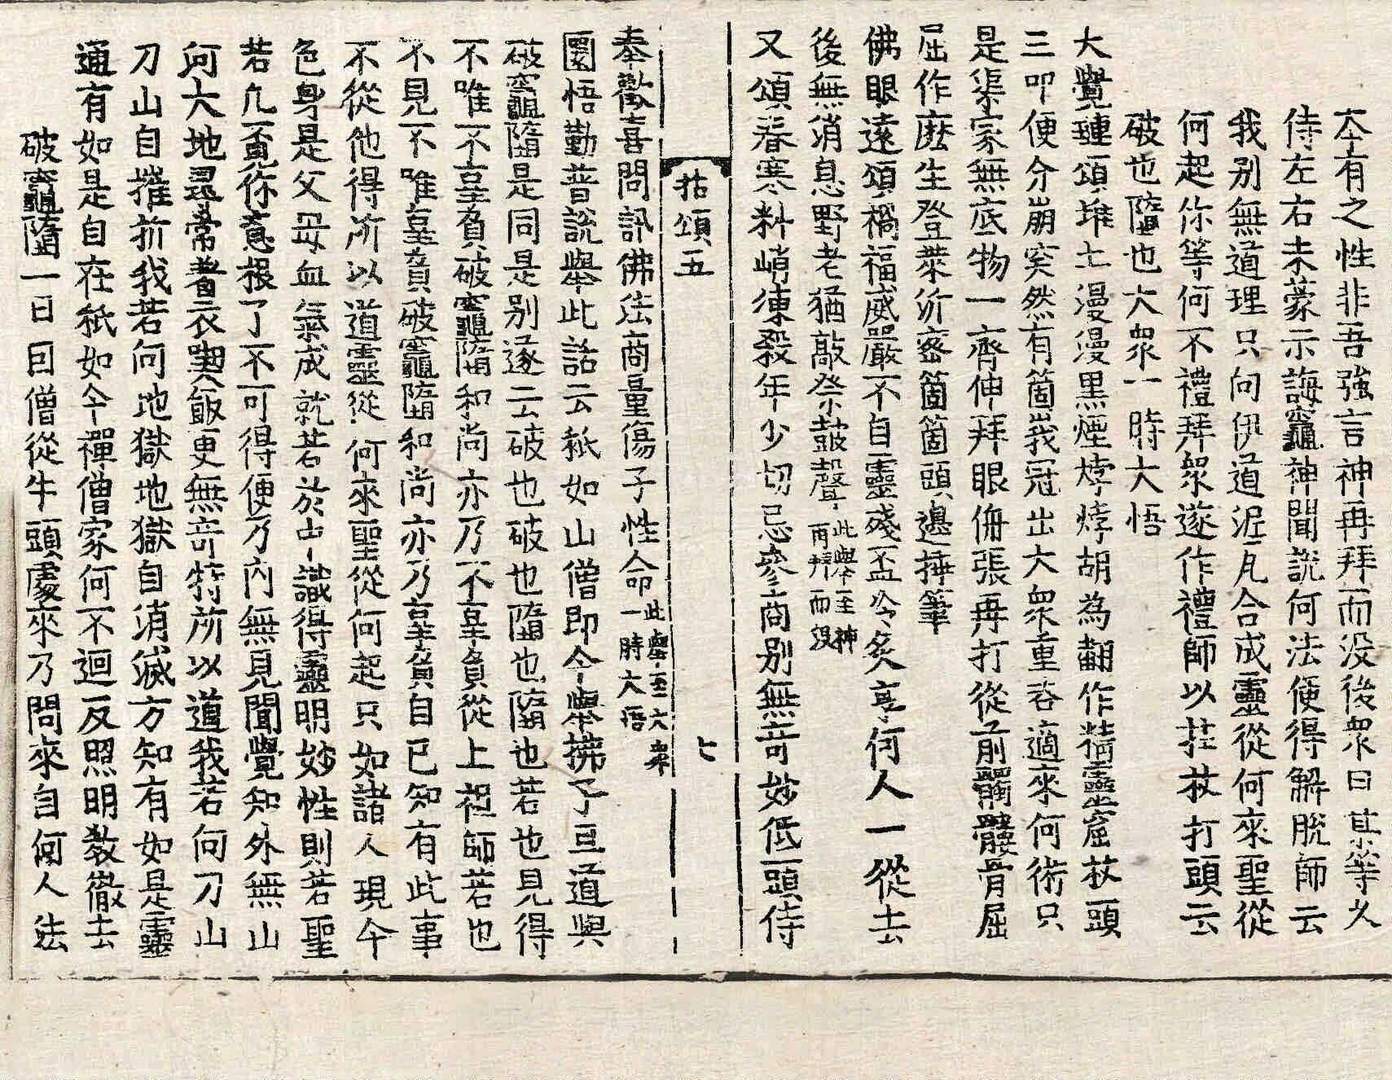 夲有之性非吾強言神再拜而没後衆曰某等乆
侍左右未蒙示誨竈神聞說何法便得解脫師云
我別無道理只向伊道泥瓦合成靈從何來聖從
何起你等何不禮拜衆遂作禮師以拄杖打頭云
破也墮也大衆一時大悟
大覺璉頌堆土漫漫黒煙㶿㶿胡為翻作精靈窟杖頭
三叩便分崩突然有箇峩冠出大衆重呑適來何術只
是渠家無底物一齊伸拜眼俻張再打從前髑髏骨屈
屈作麽生登萊沂密箇箇頭邊挿筆
佛眼遠頌禍福威嚴不自靈殘盃冷炙享何人一從去
後無消息野老猶敲祭皷聲 此舉至神再拜而没
又頌春寒料峭凍殺年少切忌參商別無竒妙低頭侍
拈頌五
七
奉歡喜問訊佛法商量傷子性命 此舉至大衆一時大悟
圜悟勤普說舉此話云秖如山僧即今舉拂子豆道與
破竈墮是同是別遂云破也破也墮也墮也若也見得
不唯不辜負破竈墮和尚亦乃不辜負從上祖師若也
不見不唯辜負破竈墮和尚亦乃辜負自已知有此事
不從他得所以道靈從何來聖從何起只如諸人現今
色身是父母血氣成就若於中識得靈明妙性則若聖
若凡覓你意根了不可得便乃內無見聞覺知外無山
河大地尋常著衣喫飯更無竒特所以道我若向刀山
刀山自摧折我若向地獄地獄自消滅方知有如是靈
通有如是自在秖如今禪僧家何不迴反照明教徹去
破竈墮一日回僧從牛頭處來乃問來自何人法